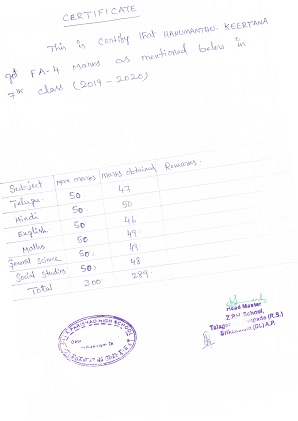 CERTIFICATE
This is certify that HANUMANTHU. KEERTANA
got FA-4 Marks as mentioned below in
7th class (2019-2020)
Subject Max marks Marks obtained Remarks.
Telugu 50 47
Hindi 50 50
English 50 46
Maths 50 49
General science 50 49
Social Studies 50 48
Total 300 289
PARISHAD HIGH SCHOOL
Head Master
Z.P.H School,
(R.S.)
(Dt.) A.P.